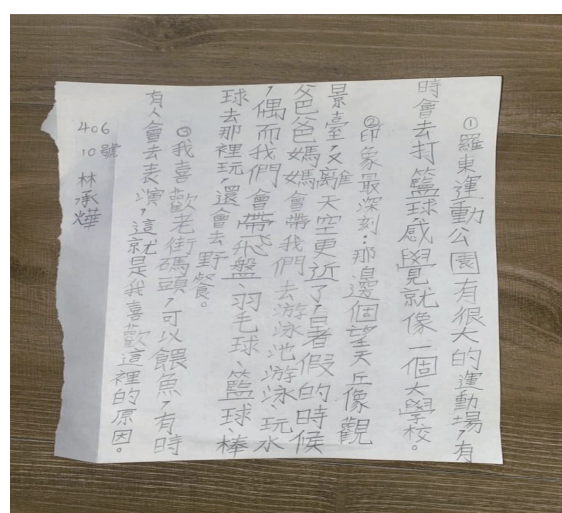 ①羅東運動公園有很大的運動場,有
時會去打籃球感覺就像一個大學校。
②印象最深刻:那邊個望天丘像觀
景臺,又離天空更近了,百者假的時候
爸爸媽媽會帶我們去游泳池游泳、玩水
,偶而我們會帶飛盤、羽毛球、籃球、棒
球去那裡玩,還會去野餐。
③我喜歡老街碼頭,可以餵魚,有時
有人會去表演,這就是我喜歡這裡的原因。
406
10號
林承燁